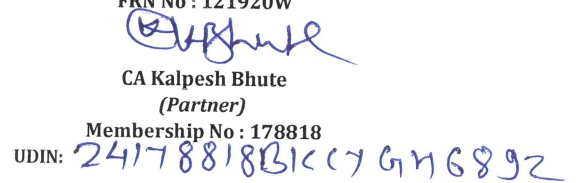 FRN No : 121920W
CA Kalpesh Bhute
(Partner)
Membership No : 178818
UDIN: 24178818BKCCYGH6892